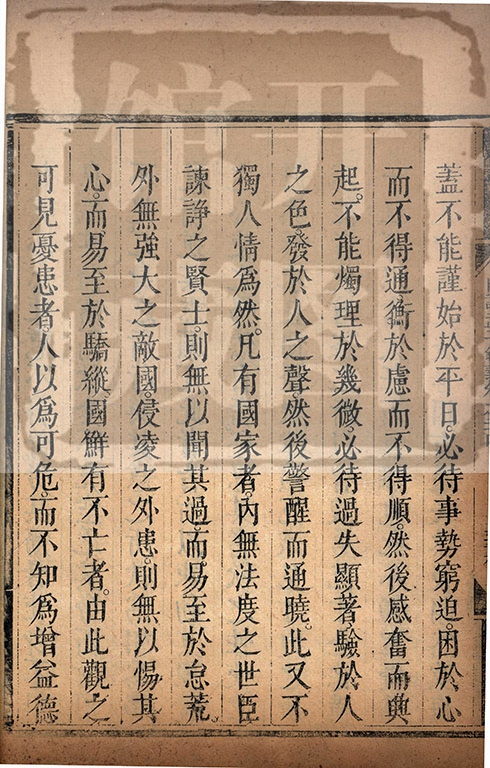 蓋不能謹始於平日。必待事勢窮迫。困於心
而不得通。衡於慮而不得順。然後感奮而興
起。不能燭理於幾微。必待過失顯著。驗於人
之色。發於人之聲。然後警醒而通曉。此又不
獨人情爲然。凡有國家者。內無法度之世臣
諫諍之賢士。則無以聞其過。而易至於怠荒。
外無強大之敵國。侵凌之外患。則無以惕其
心。而易至於驕縱。國鮮有不亡者。由此觀之
可見憂患者。人以爲可危。而不知爲增益德